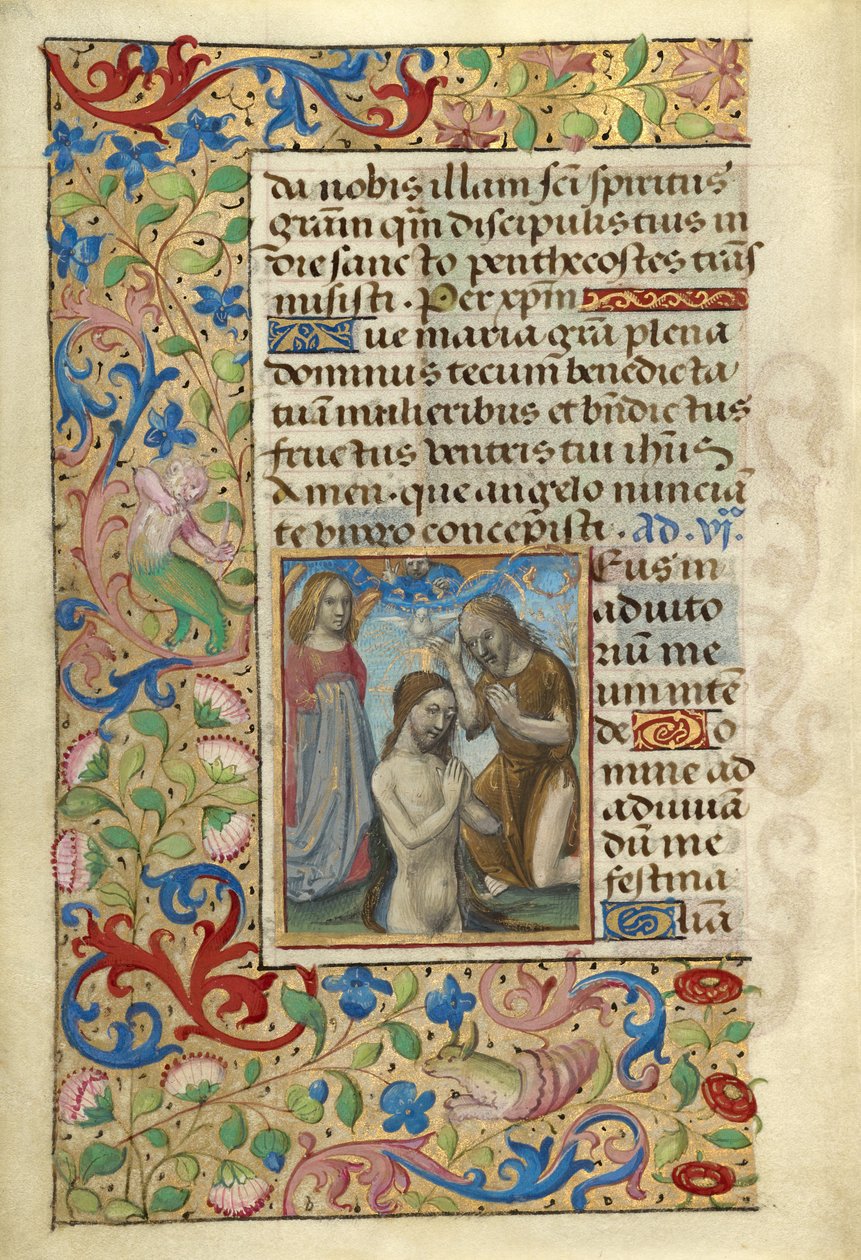 da nobis illam sci spiritus
gram qm discipulis tius in
die sancto penthecostes trās
misisti . Per xpm
ue maria gra plena
dominus tecum benedicta
tu in mulieribus et bndictus
fructus ventris tui ihus
Amen . que angelo nunciā
te virro concepisti . ad . vj .
Eus in
adiuto
riū me
um intē
de o
mine ad
adiuuā
dū me
festina
lia